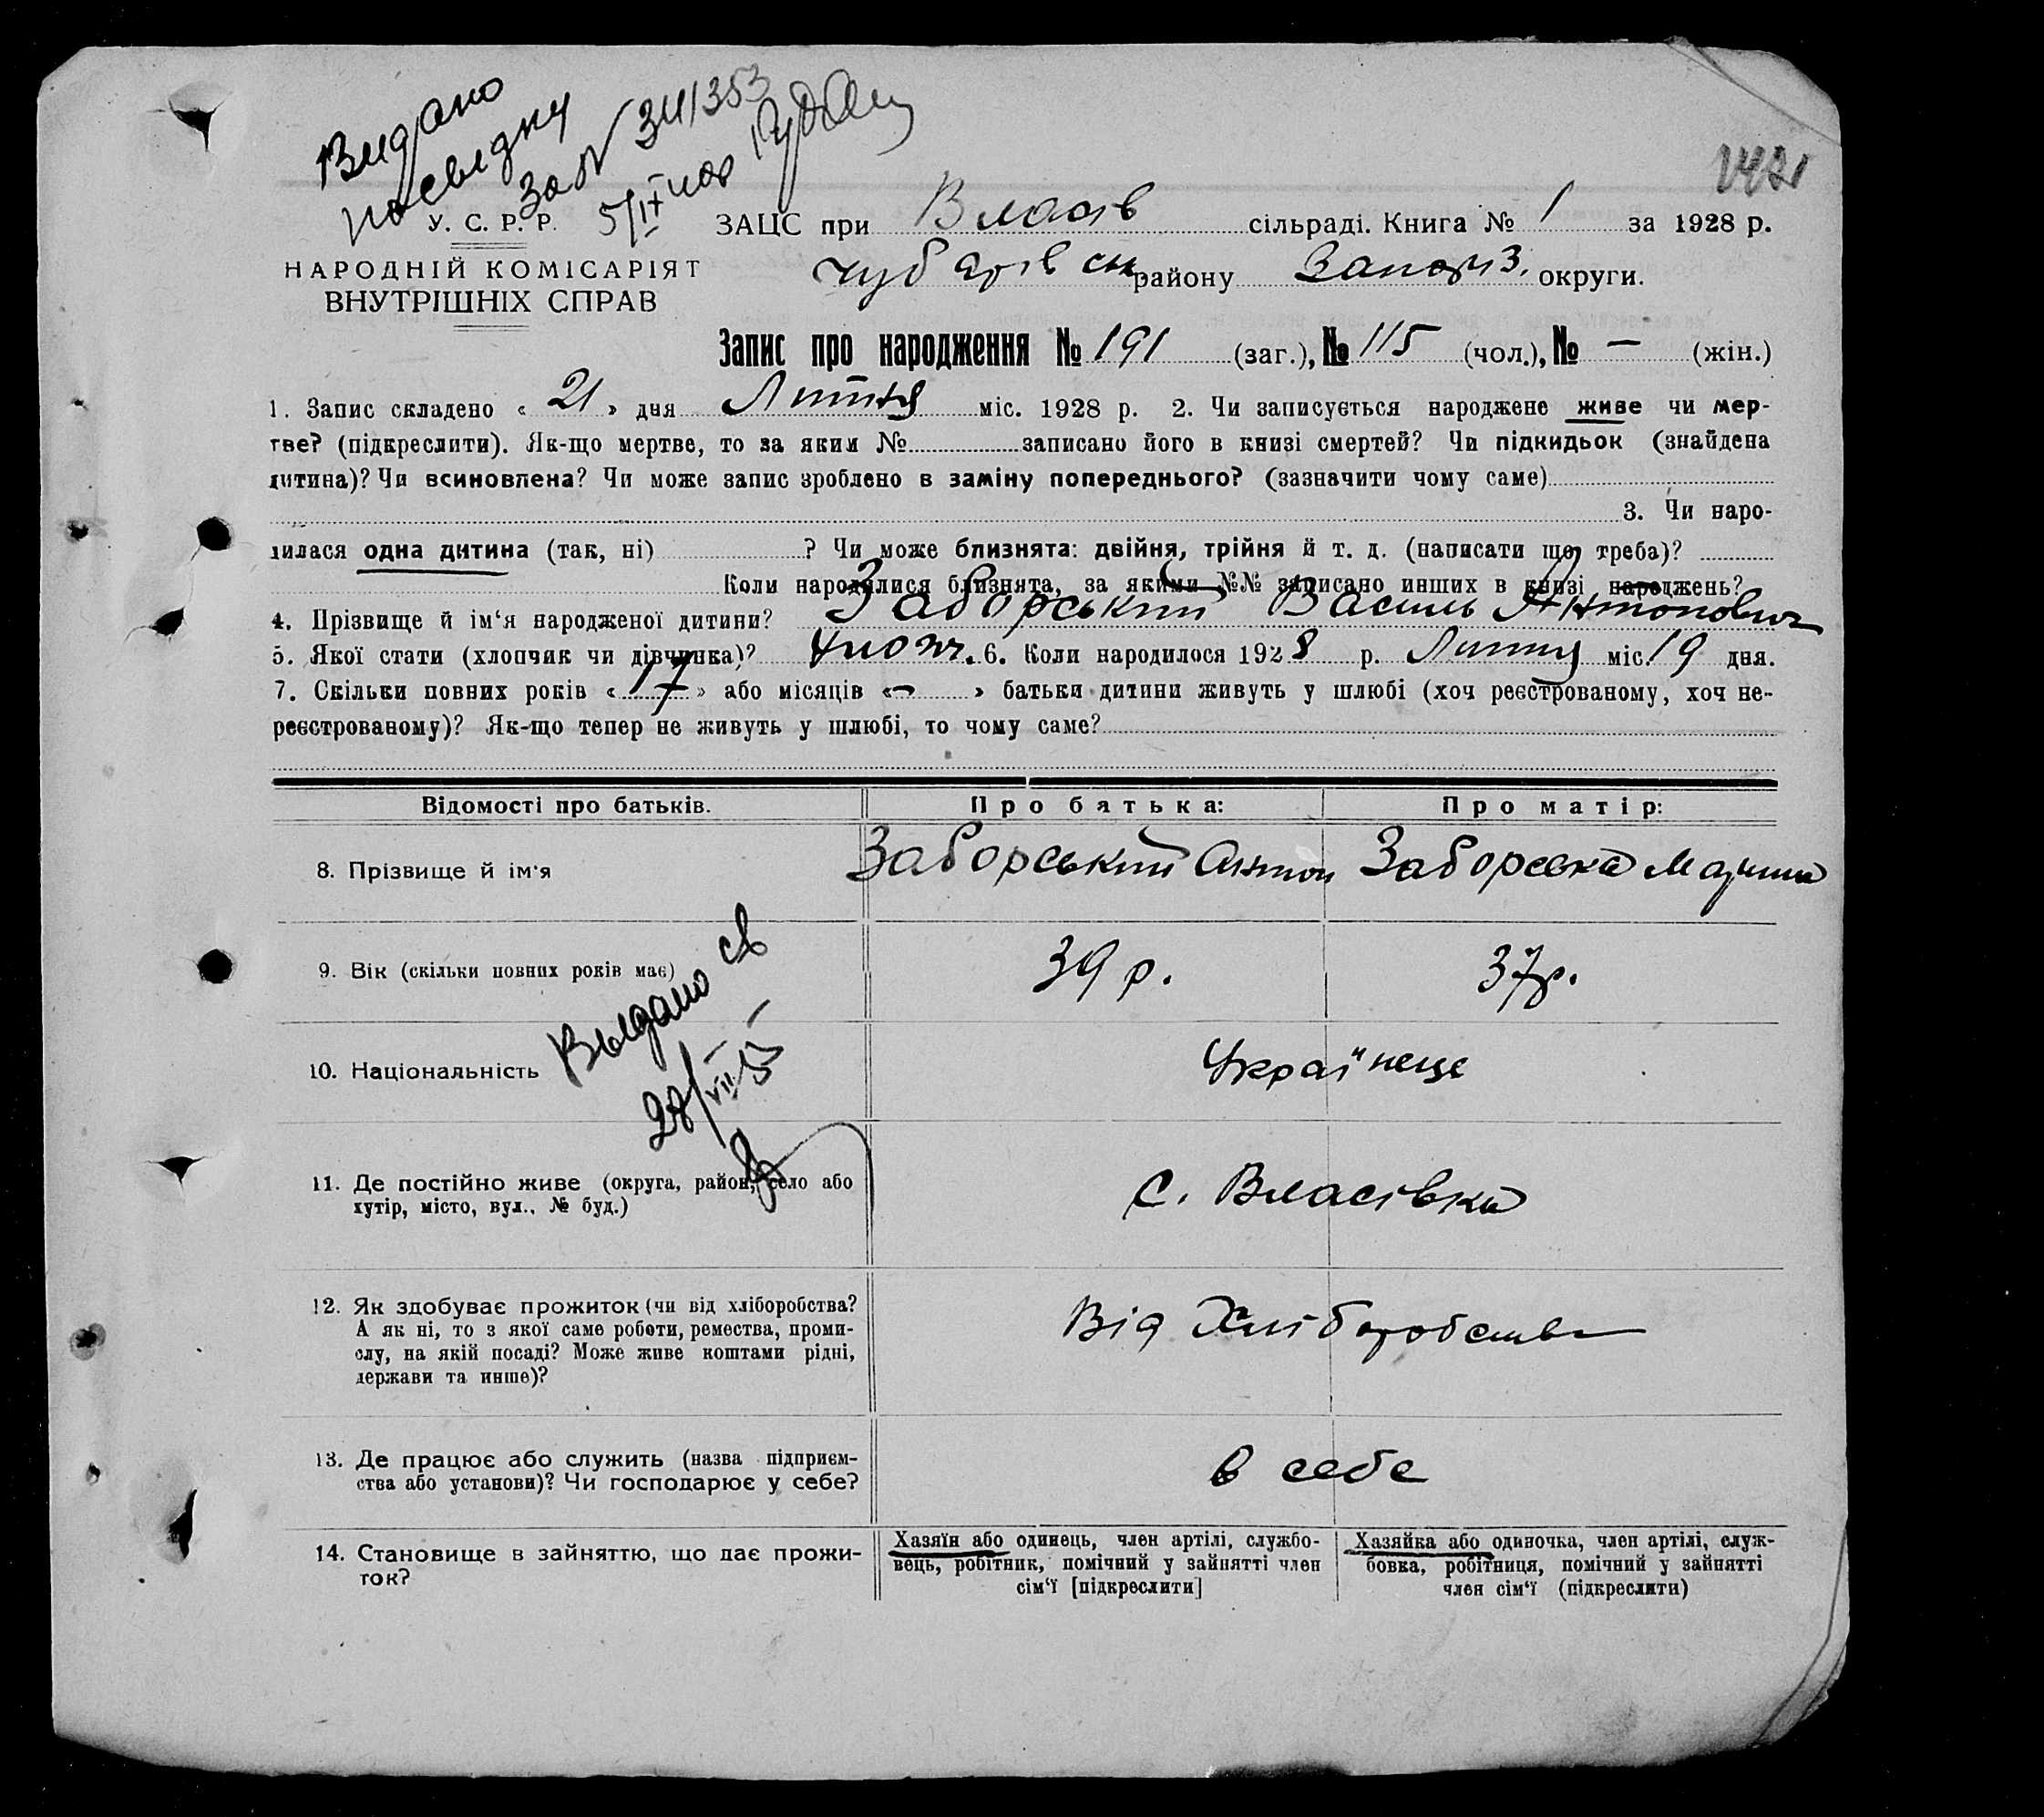 Видано
посвідку
за № 341353
5/IX
142
У. С. Р. Р.
НАРОДНІЙ КОМІСАРІЯТ
ВНУТРІШНІХ СПРАВ
ЗАЦС при Власів сільраді. Книга № 1 за 1928 р.
Чубарівськ району Запоріз. округи.
Запис про народження № 191 (заг.), № 115 (чол.), № — (жін.)
1. Запис складено « 21 » дня Липня міс. 1928 р. 2. Чи записується народжене живе чи мер-
тве? (підкреслити). Як-що мертве, то за яким № записано його в книзі смертей? Чи підкидьок (знайдена
дитина)? Чи всиновлена? Чи може запис зроблено в заміну попереднього? (зазначити чому саме)
3. Чи наро-
дилася одна дитина (так, ні) ? Чи може близнята: двійня, трійня й т. д. (написати що треба)?
Коли народилися близнята, за якими №№ записано инших в книзі народжень?
4. Прізвище й ім'я народженої дитини? Заборський Василь Антонович
5. Якої стати (хлопчик чи дівчинка)? чолов. 6. Коли народилося 1928 р. Липня міс. 19 дня.
7. Скільки повних років « 17 » або місяців « — » батьки дитини живуть у шлюбі (хоч реєстрованому, хоч не-
реєстрованому)? Як-що тепер не живуть у шлюбі, то чому саме?
Відомості про батьків. Про батька: Про матір:
8. Прізвище й ім'я Заборський Антон Заборська Марина
9. Вік (скільки повних років має) 39 р. 37 р.
Выдано св
28/VII 55
10. Національність Українеце
11. Де постійно живе (округа, район, село або
хутір, місто, вул., № буд.)
с. Власівка
12. Як здобуває прожиток (чи від хліборобства?
А як ні, то з якої саме роботи, ремества, проми-
слу, на якій посаді? Може живе коштами рідні,
держави та инше)?
Від Хліборобства
13. Де працює або служить (назва підприєм-
ства або установи)? Чи господарює у себе?
в себе
14. Становище в зайняттю, що дає прожи-
ток?
Хазяїн або одинець, член артілі, службо-
вець, робітник, помічний у зайнятті член
сім'ї [підкреслити]
Хазяйка або одиночка, член артілі, служ-
бовка, робітниця, помічний у зайнятті
член сім'ї (підкреслити)